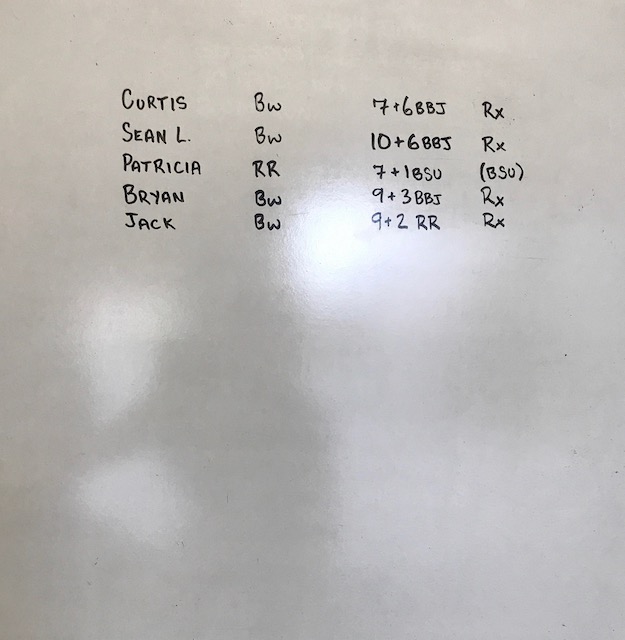 CURTIS Bw 7+6BBJ Rx
SEAN L. Bw 10+6BBJ Rx
PATRICIA RR 7+1BSU (BSU)
BRYAN Bw 9+3BBJ Rx
JACK Bw 9+2 RR Rx